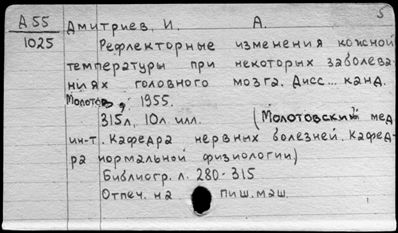 Д 55
1025
5
Дмитриев, И. А.
Рефлекторные изменения кожной
температуры при некоторых заболева-
ниях головного мозга. Дисс... канд.
Молотов, 1955.
315л, 10л илл. (Молотовский мед.
ин-т. Кафедра нервных болезней. Кафед-
ра нормальной физиологии)
Библиогр. л. 280-315
Отпеч. на пиш. маш.